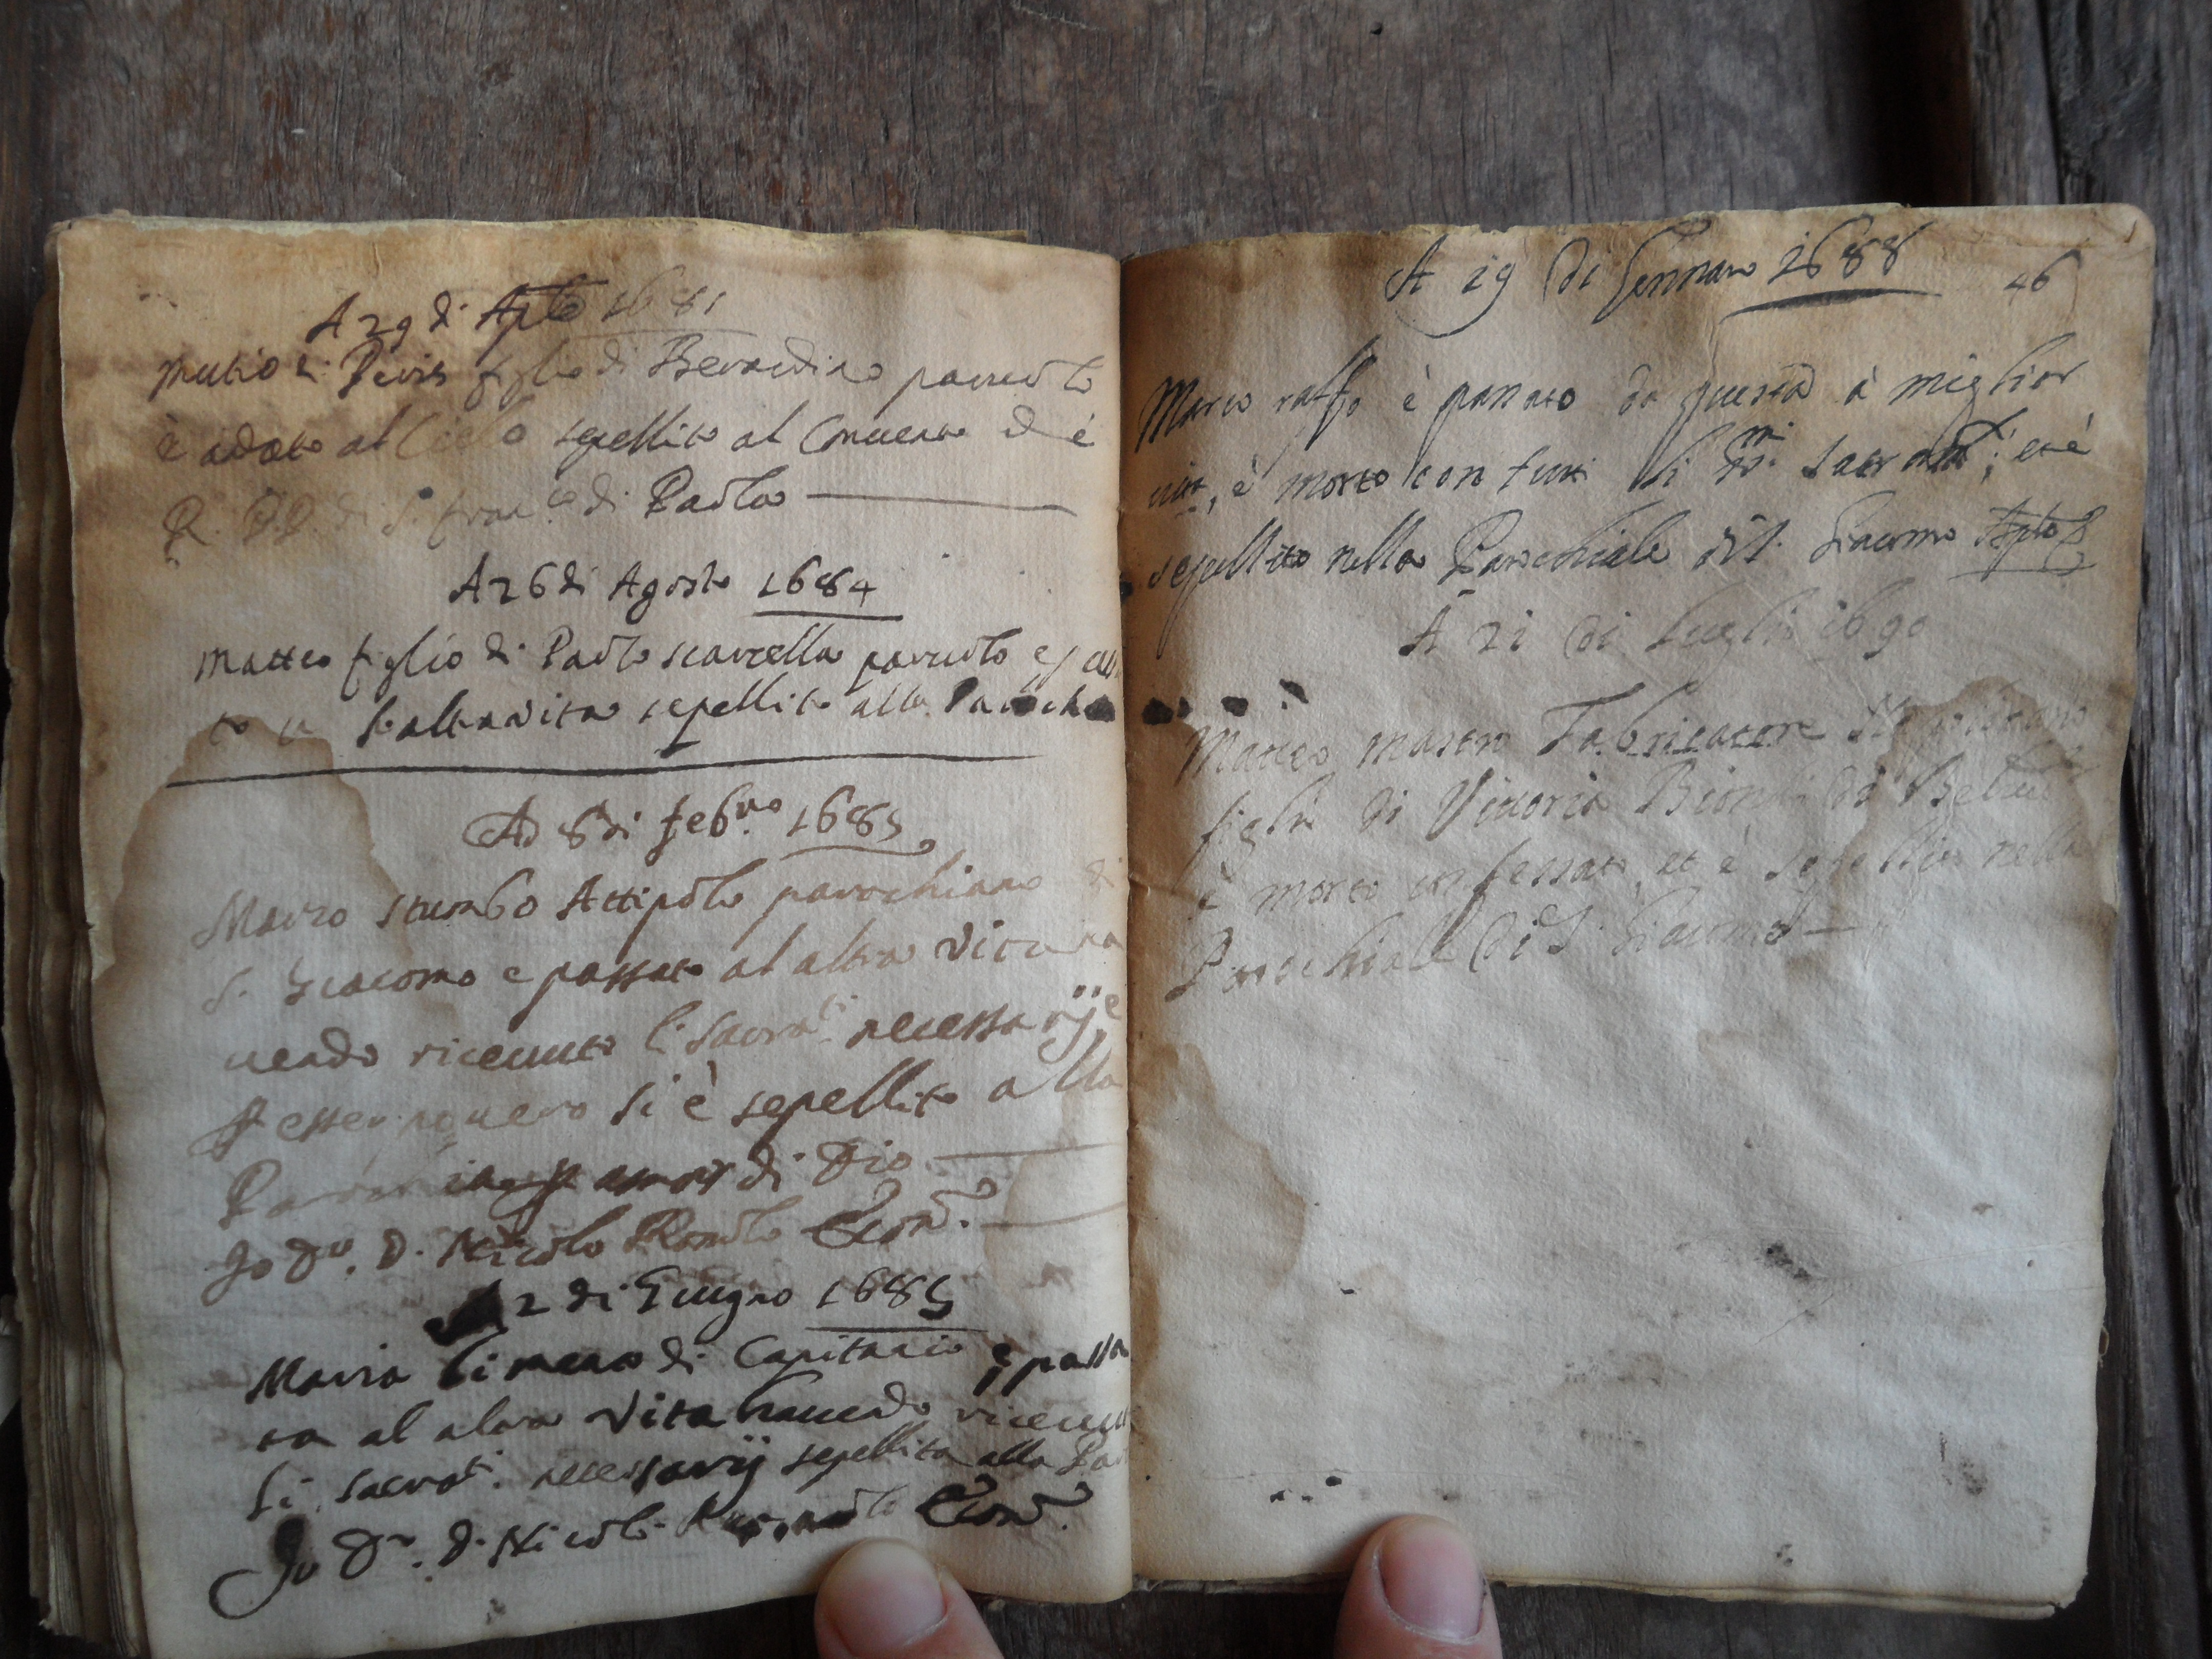 A 29 di Aple 1681
Mutio di figlio di Berardino parvolo
è adato al Cielo sepellito al Convento dè
R. P.P. di S. Franco di Paola
A 26 di Agosto 1684
Matteo figlio di Paolo scarcella parvolo
l'altra vita sepellito alla
Ad 8 di febro 1685
Marco stumbo Attipolo parochiano di
S. Giacomo e passato al altra vita ha
uendo riceuuto li sacrati necessarij e
esser pouero si è sepellito alla
amor di Dio
Io Dr. D. Nicolo Econ.
A 2 di Giugno 1685
Maria di Capitanio è passa
ta al altra vita hauendo riceuu
li sacrati. necessarij sepellita alla Par
Io Dr. D. Nicolo Econ.
A 19 di Gennaro 1688
46
Marco raffo è passato da questa à miglior
vita, è morto con tutti li SS.mi Sacramti; et è
sepellito nella Parochiale di S. Giacomo Aplo
A 21 di Luglio 1690
Matteo mastro Fabricatore
figlio di Vittoria
è morto confessato, et è sepellito nella
Parochiale di S. Giacomo